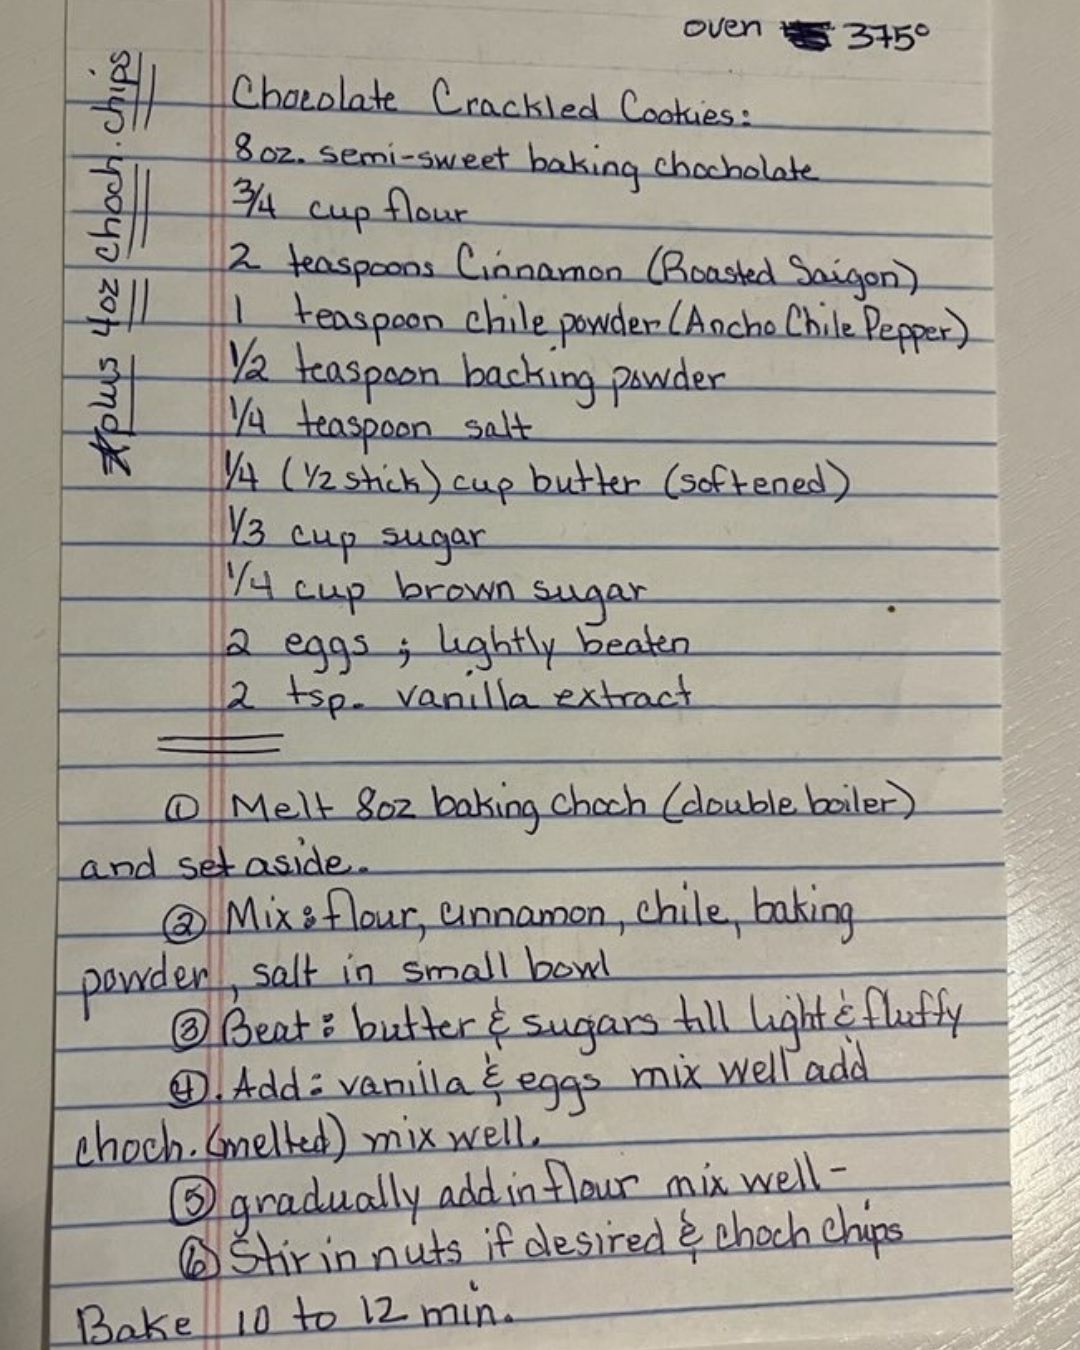 oven 375°
Chocolate Crackled Cookies:
8 oz. semi-sweet baking chocholate
3/4 cup flour
2 teaspoons Cinnamon (Roasted Saigon)
1 teaspoon chile powder (Ancho Chile Pepper)
1/2 teaspoon backing powder
1/4 teaspoon salt
1/4 (1/2 stick) cup butter (softened)
1/3 cup sugar
1/4 cup brown sugar
2 eggs ; lightly beaten
2 tsp. vanilla extract
*plus 4oz choch. chips
① Melt 8oz baking choch (double boiler)
and set aside.
② Mix: flour, cinnamon, chile, baking
powder, salt in small bowl
③ Beat: butter & sugars till light & fluffy
④. Add: vanilla & eggs mix well add
choch. (melted) mix well.
⑤ gradually add in flour mix well -
⑥ Stir in nuts if desired & choch chips
Bake 10 to 12 min.